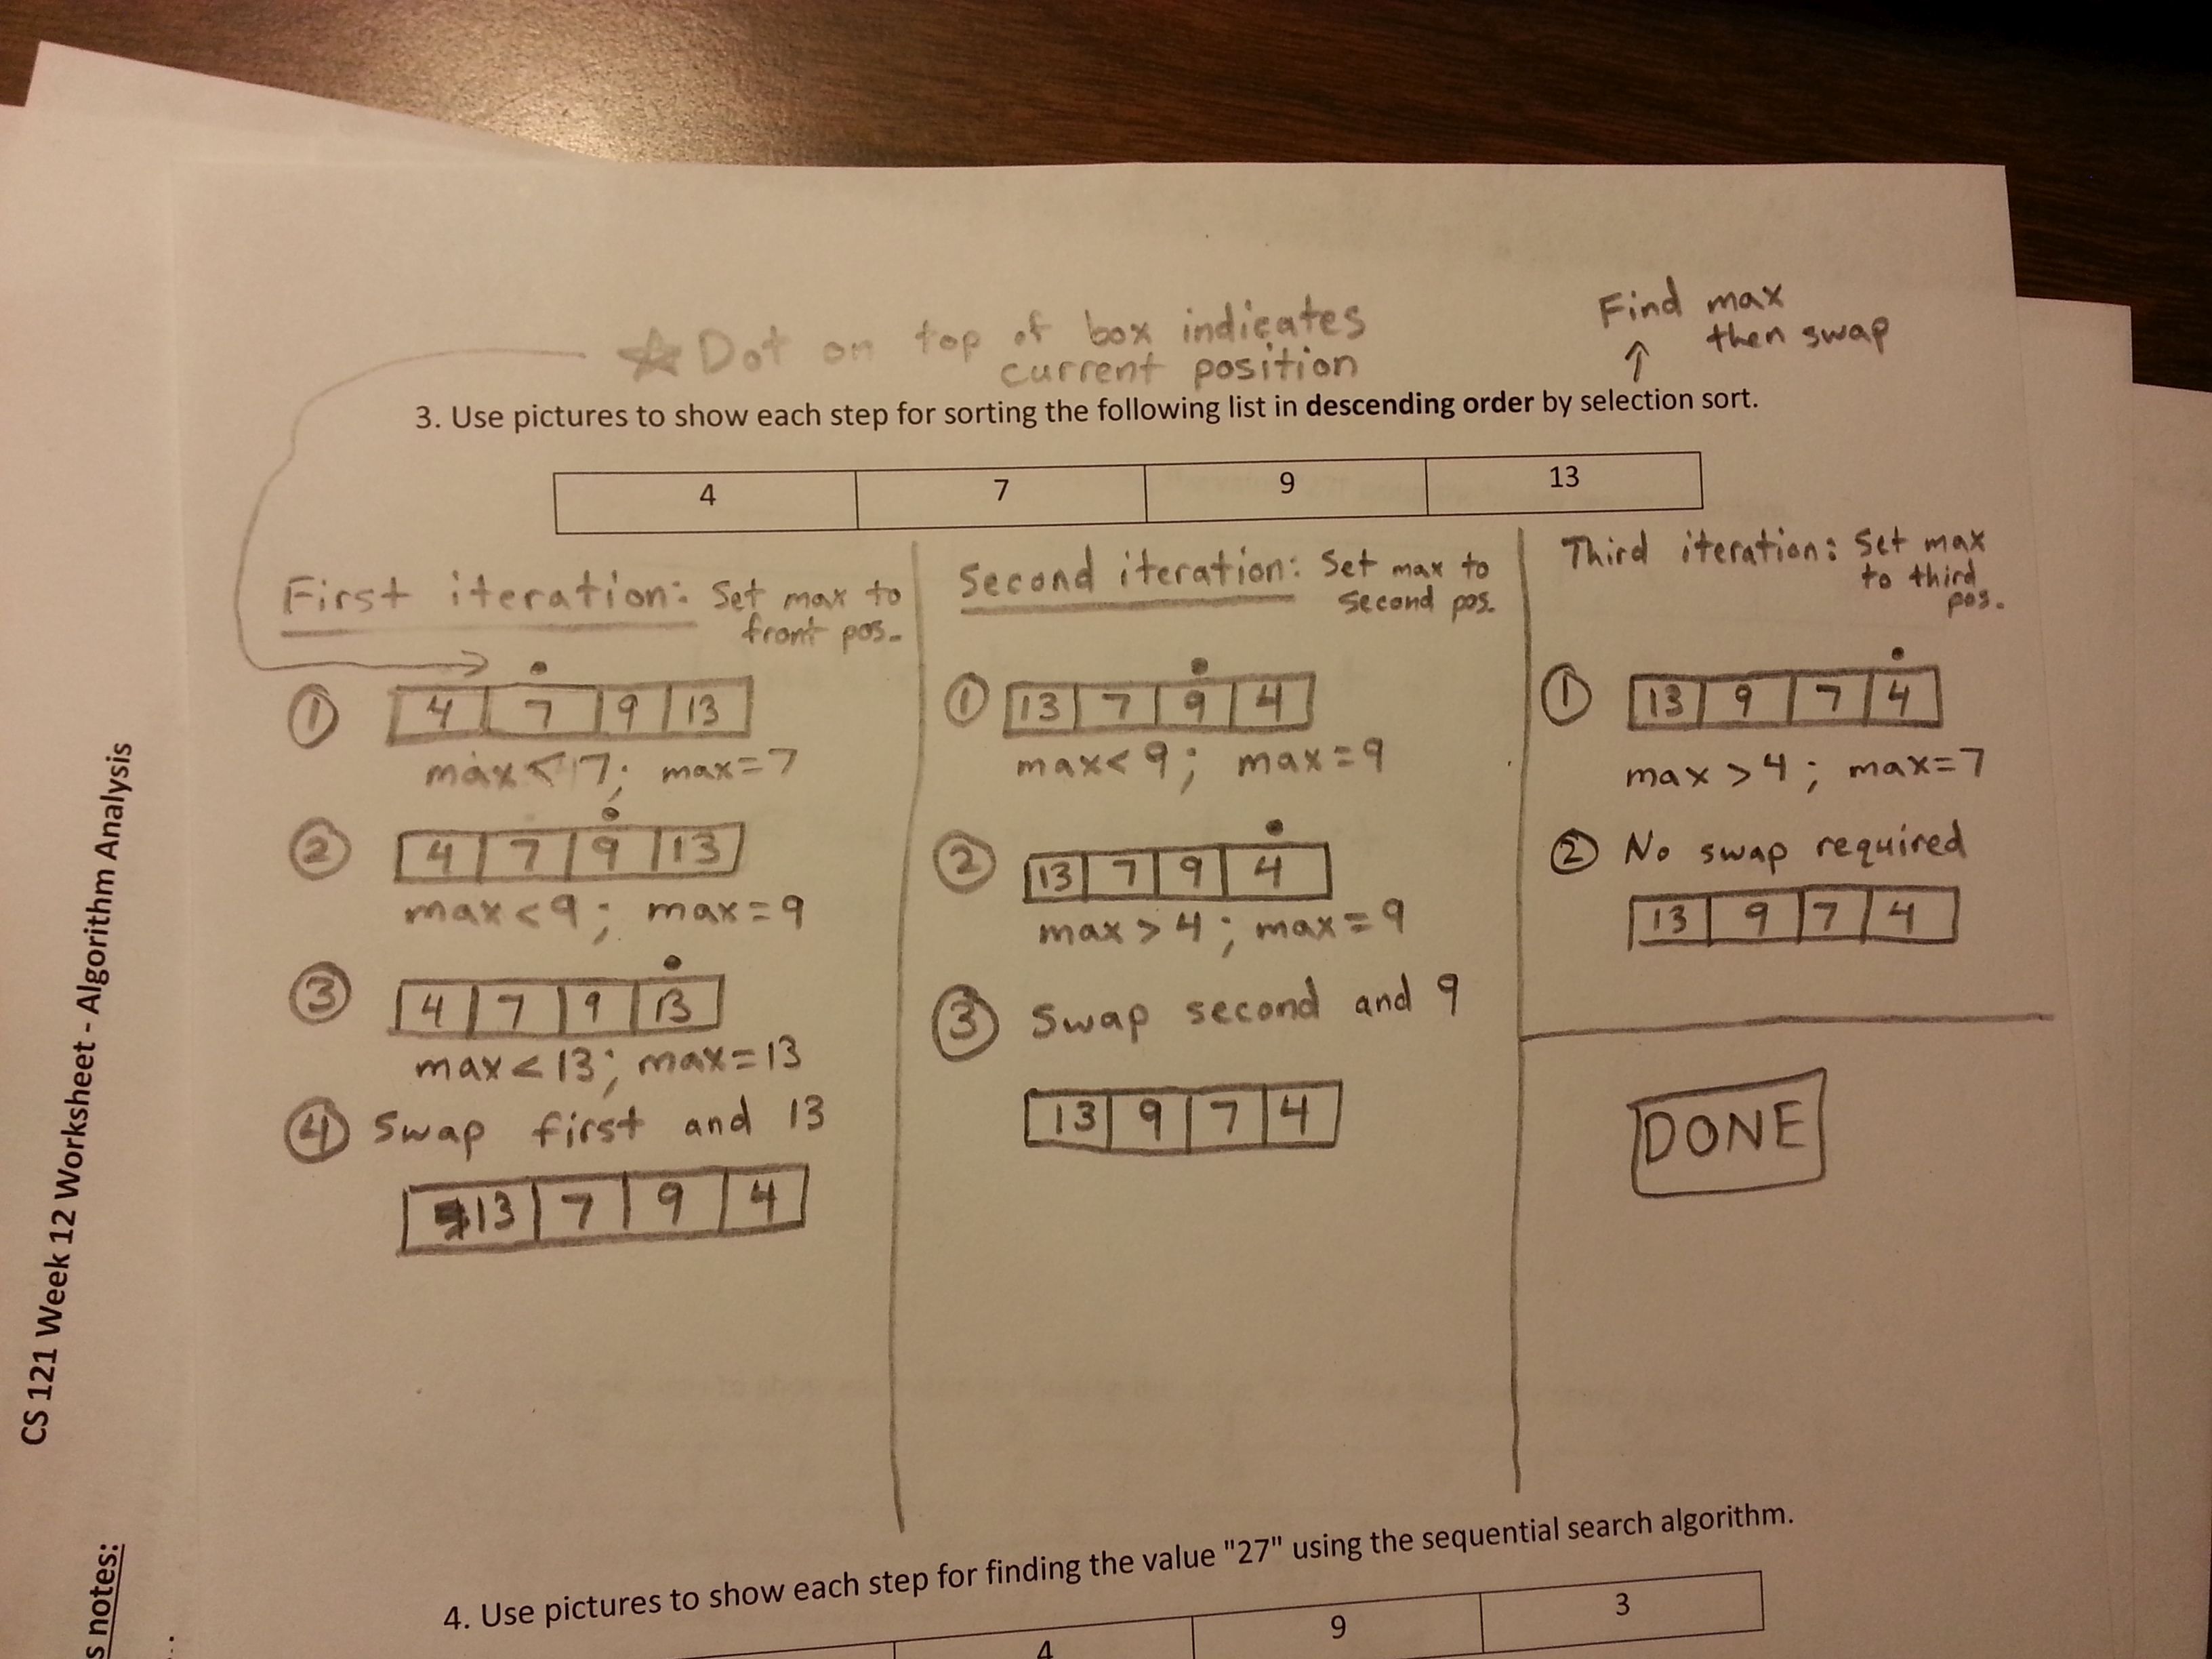 ☆ Dot on top of box indicates
current position
Find max
then swap
↑
3. Use pictures to show each step for sorting the following list in descending order by selection sort.
4 7 9 13
First iteration: Set max to
front pos.
① 4 7 9 13
max < 7; max=7
② 4 7 9 13
max < 9; max=9
③ 4 7 9 13
max < 13; max=13
④ Swap first and 13
13 7 9 4
Second iteration: Set max to
second pos.
① 13 7 9 4
max < 9; max=9
② 13 7 9 4
max > 4; max=9
③ Swap second and 9
13 9 7 4
Third iteration: Set max
to third
pos.
① 13 9 7 4
max > 4; max=7
② No swap required
13 9 7 4
DONE
4. Use pictures to show each step for finding the value "27" using the sequential search algorithm.
4 9 3
CS 121 Week 12 Worksheet - Algorithm Analysis
s notes: